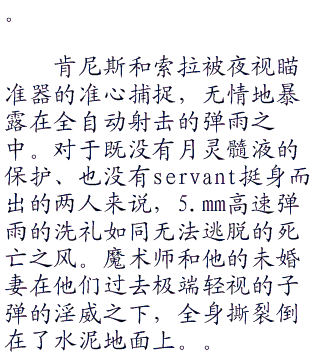 。
肯尼斯和索拉被夜视瞄
准器的准心捕捉，无情地暴
露在全自动射击的弹雨之
中。对于既没有月灵髓液的
保护、也没有servant挺身而
出的两人来说，5.mm高速弹
雨的洗礼如同无法逃脱的死
亡之风。魔术师和他的未婚
妻在他们过去极端轻视的子
弹的淫威之下，全身撕裂倒
在了水泥地面上。。